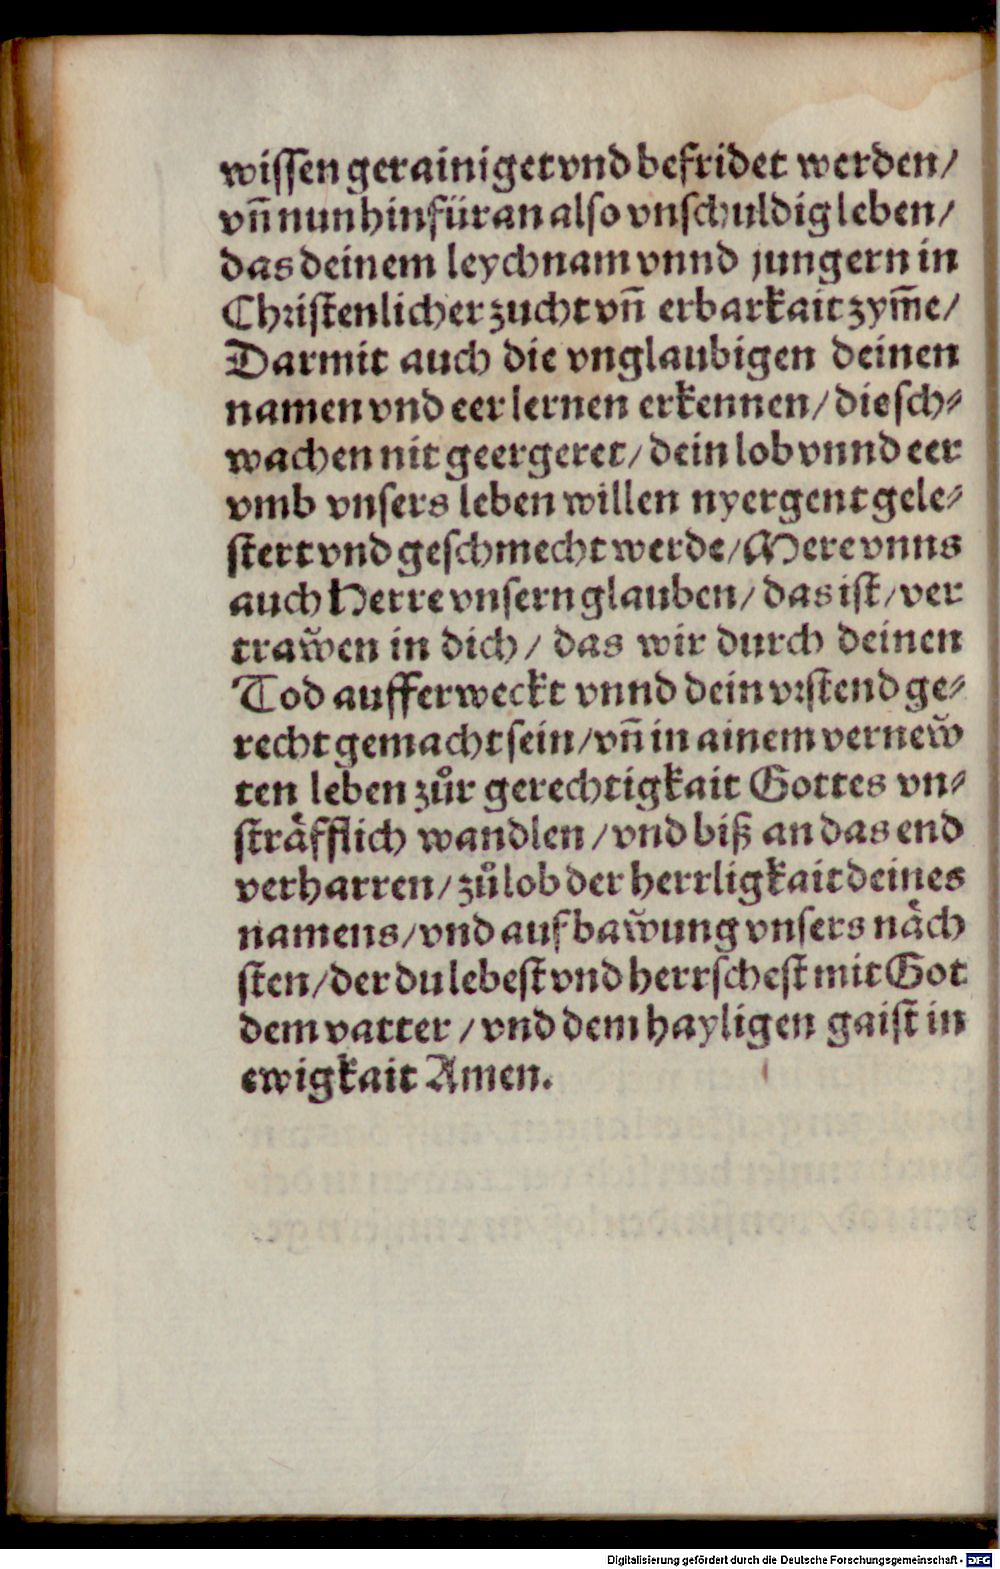 wissen gerainiget vnd befridet werden/
vñ nun hinfüran also vnschuldig leben/
das deinem leychnam vnnd jungern in
Christenlicher zucht vñ erbarkait zym̃e/
Darmit auch die vnglaubigen deinen
namen vnd eer lernen erkennen/ die sch⸗
wachen nit geergeret/ dein lob vnnd eer
vmb vnsers leben willen nyergent gele⸗
stert vnd geschmecht werde/ Mere vnns
auch Herre vnsern glauben/ das ist/ ver
traw̃en in dich/ das wir durch deinen
Tod aufferweckt vnnd dein vrstend ge⸗
recht gemacht sein/ vñ in ainem vernew̃
ten leben zůr gerechtigkait Gottes vn⸗
sträfflich wandlen/ vnd biß an das end
verharren/ zů lob der herrligkait deines
namens/ vnd aufbaw̃ung vnsers näch
sten/ der du lebest vnd herrschest mit Got
dem vatter/ vnd dem hayligen gaist in
ewigkait Amen.
Digitalisierung gefördert durch die Deutsche Forschungsgemeinschaft - DFG